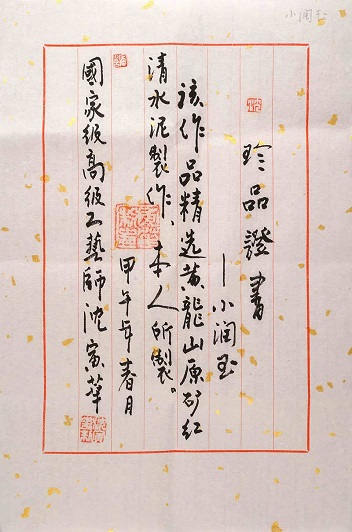 小润玉
珍品證書
—小润玉
该作品精选黄龍山原矿红
清水泥製作、本人所製。
甲午年春月
國家级高级工藝師沈寅华